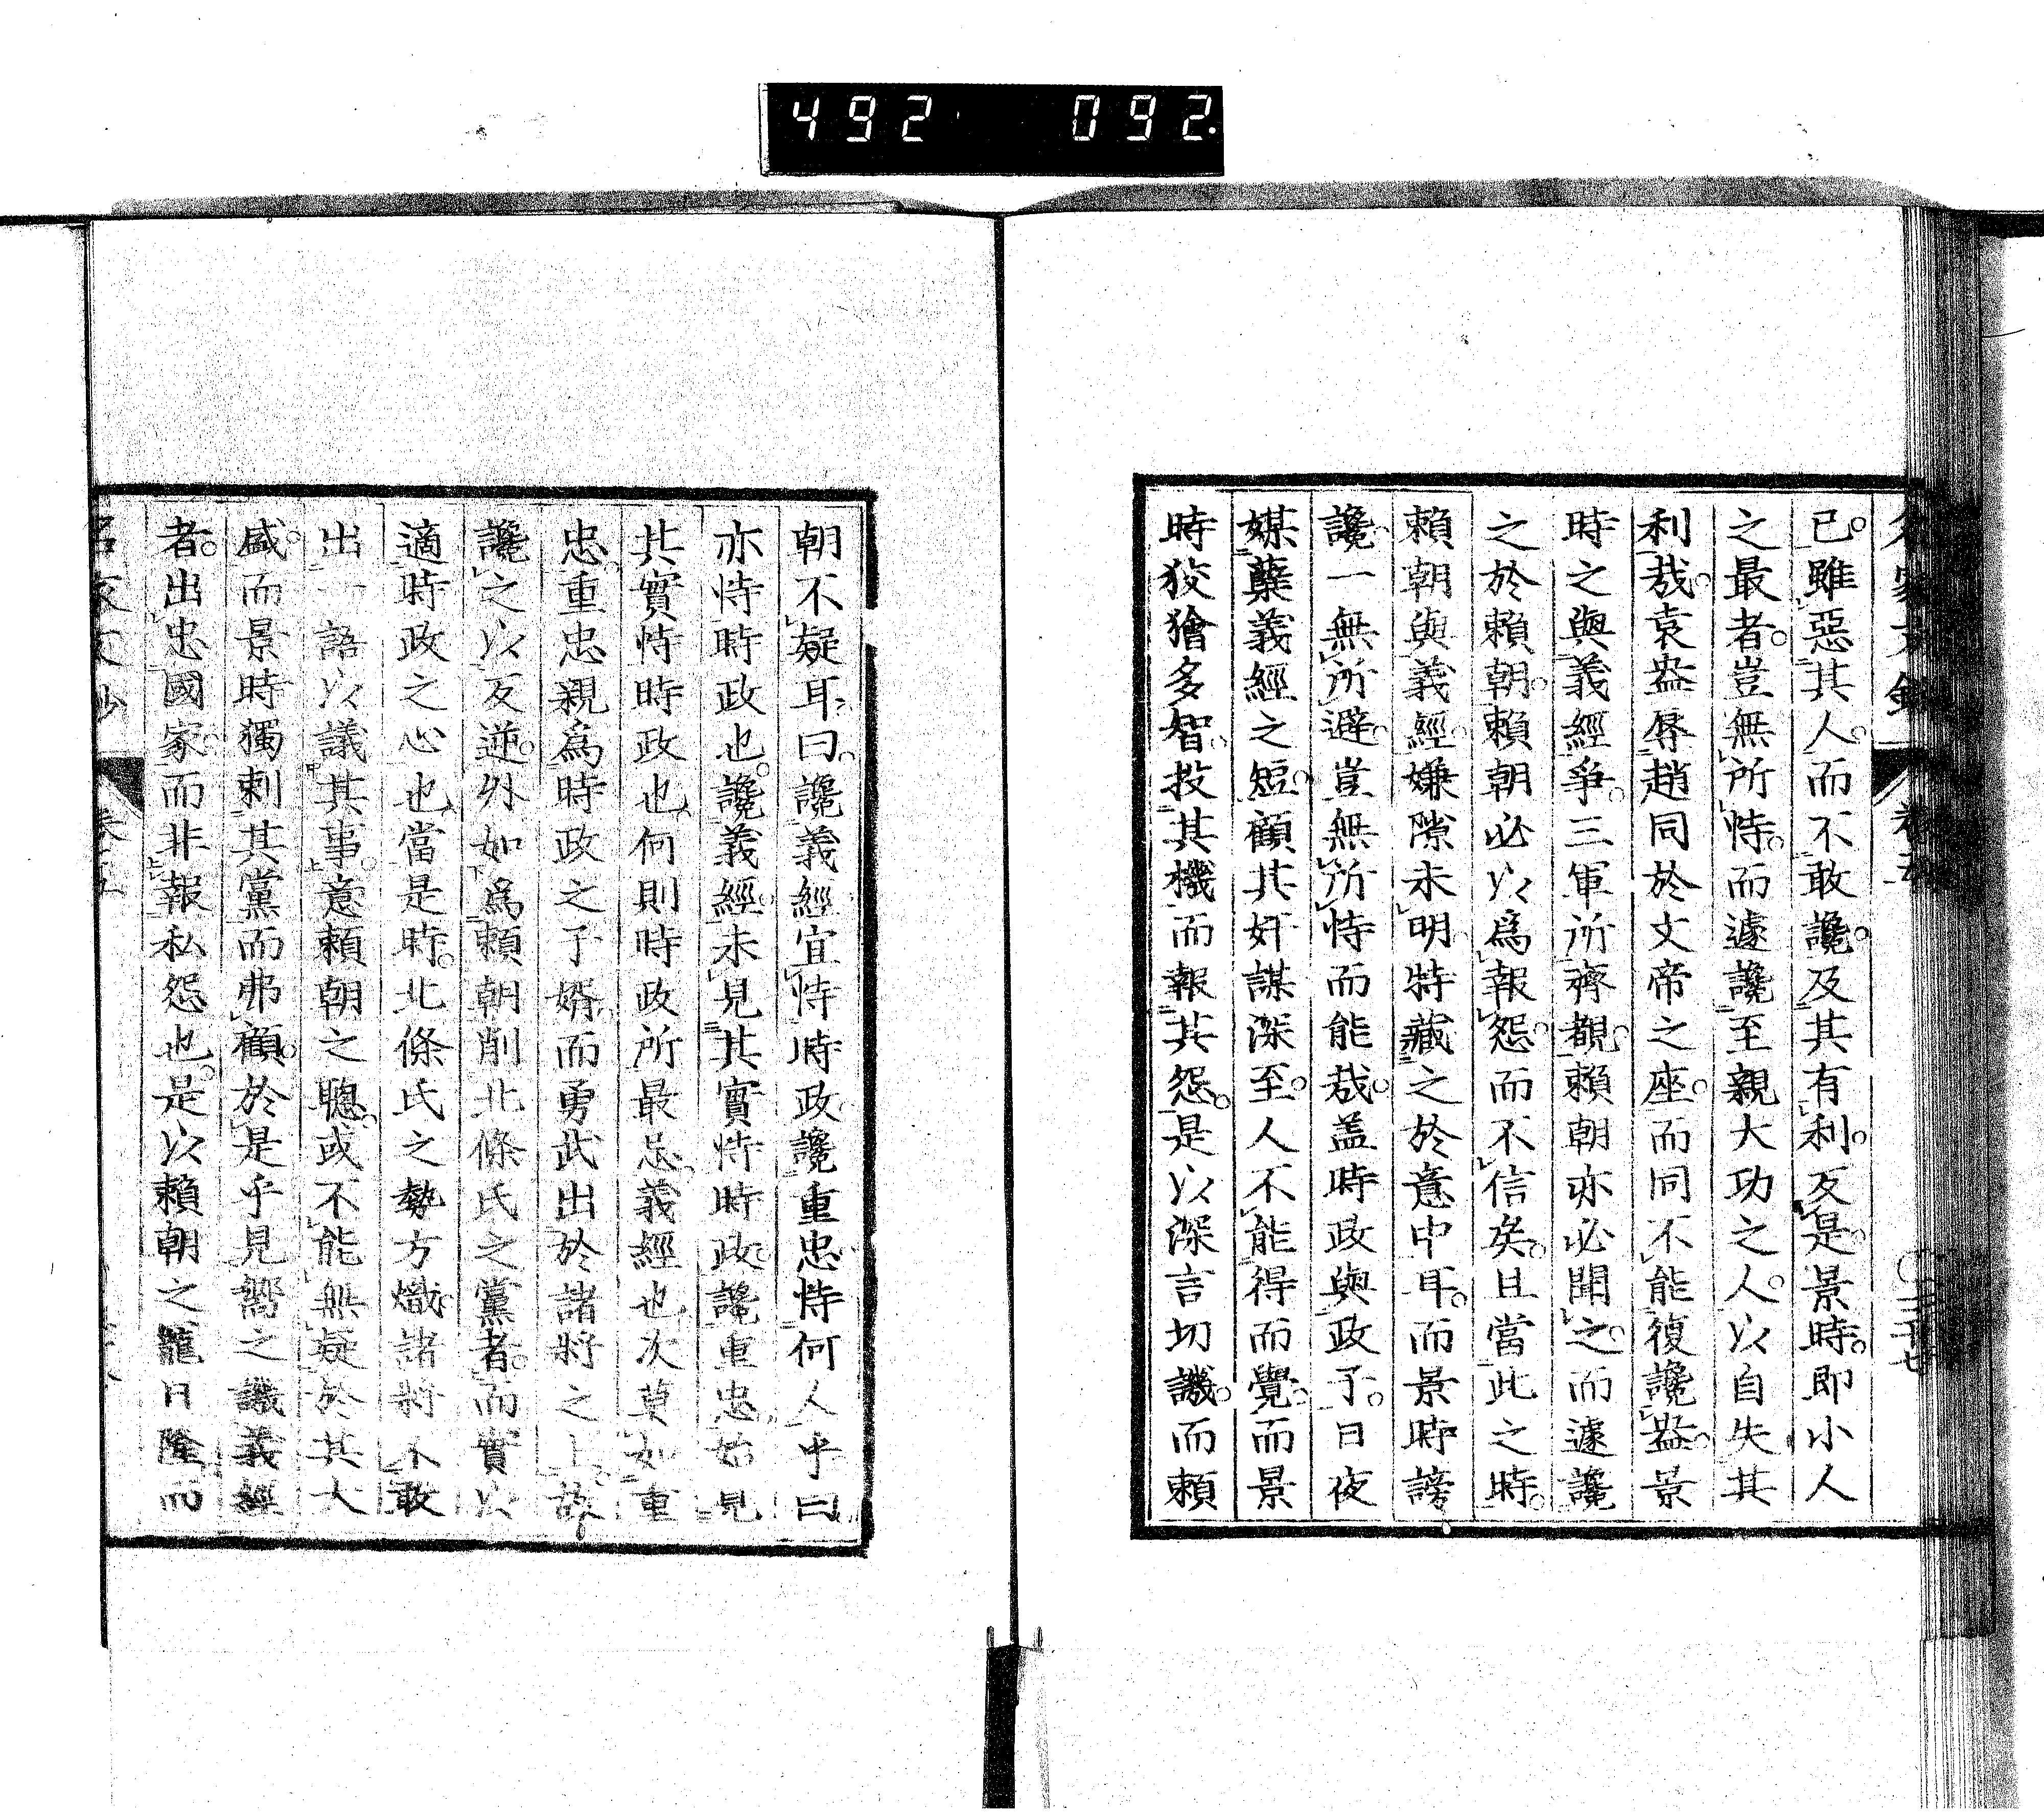 492 092.
已。雖惡其人。而不敢讒。及其有利。反是。景時。即小人
之最者。豈無所恃。而遽讒至親大功之人。以自失其
利哉。袁盎辱趙同於文帝之座。而同不能復讒盎。景
時之與義經爭。三軍所齊覩。賴朝亦必聞之。而遽讒
之於賴朝。賴朝必以爲報怨。而不信矣。且當此之時。
賴朝與義經。嫌隙未明。特藏之於意中耳。而景時謗
讒。一無所避。豈無所恃而能哉。蓋時政與政子。日夜
媒蘖義經之短。顧其奸謀深至。人不能得而覺。而景
時狡獪多智。投其機而報其怨。是以深言切譏。而賴
朝不疑耳。曰。讒義經宜恃時政。讒重忠恃何人乎。曰
亦恃時政也。讒義經。未見其實恃時政。讒重忠。始見
其實恃時政也。何則時政所最忌。義經也。次莫如重
忠。重忠親爲時政之子婿。而勇武出於諸將之上。故
讒之以反逆。外如爲賴朝削北條氏之黨者。而實以
適時政之心也。當是時。北條氏之勢方熾。諸將不敢
出一語以議其事。意賴朝之聰。或不能無疑於其大
盛。而景時獨刺其黨而弗顧。於是乎見嚮之譏義經
者。出忠國家。而非報私怨也。是以賴朝之寵日隆。而